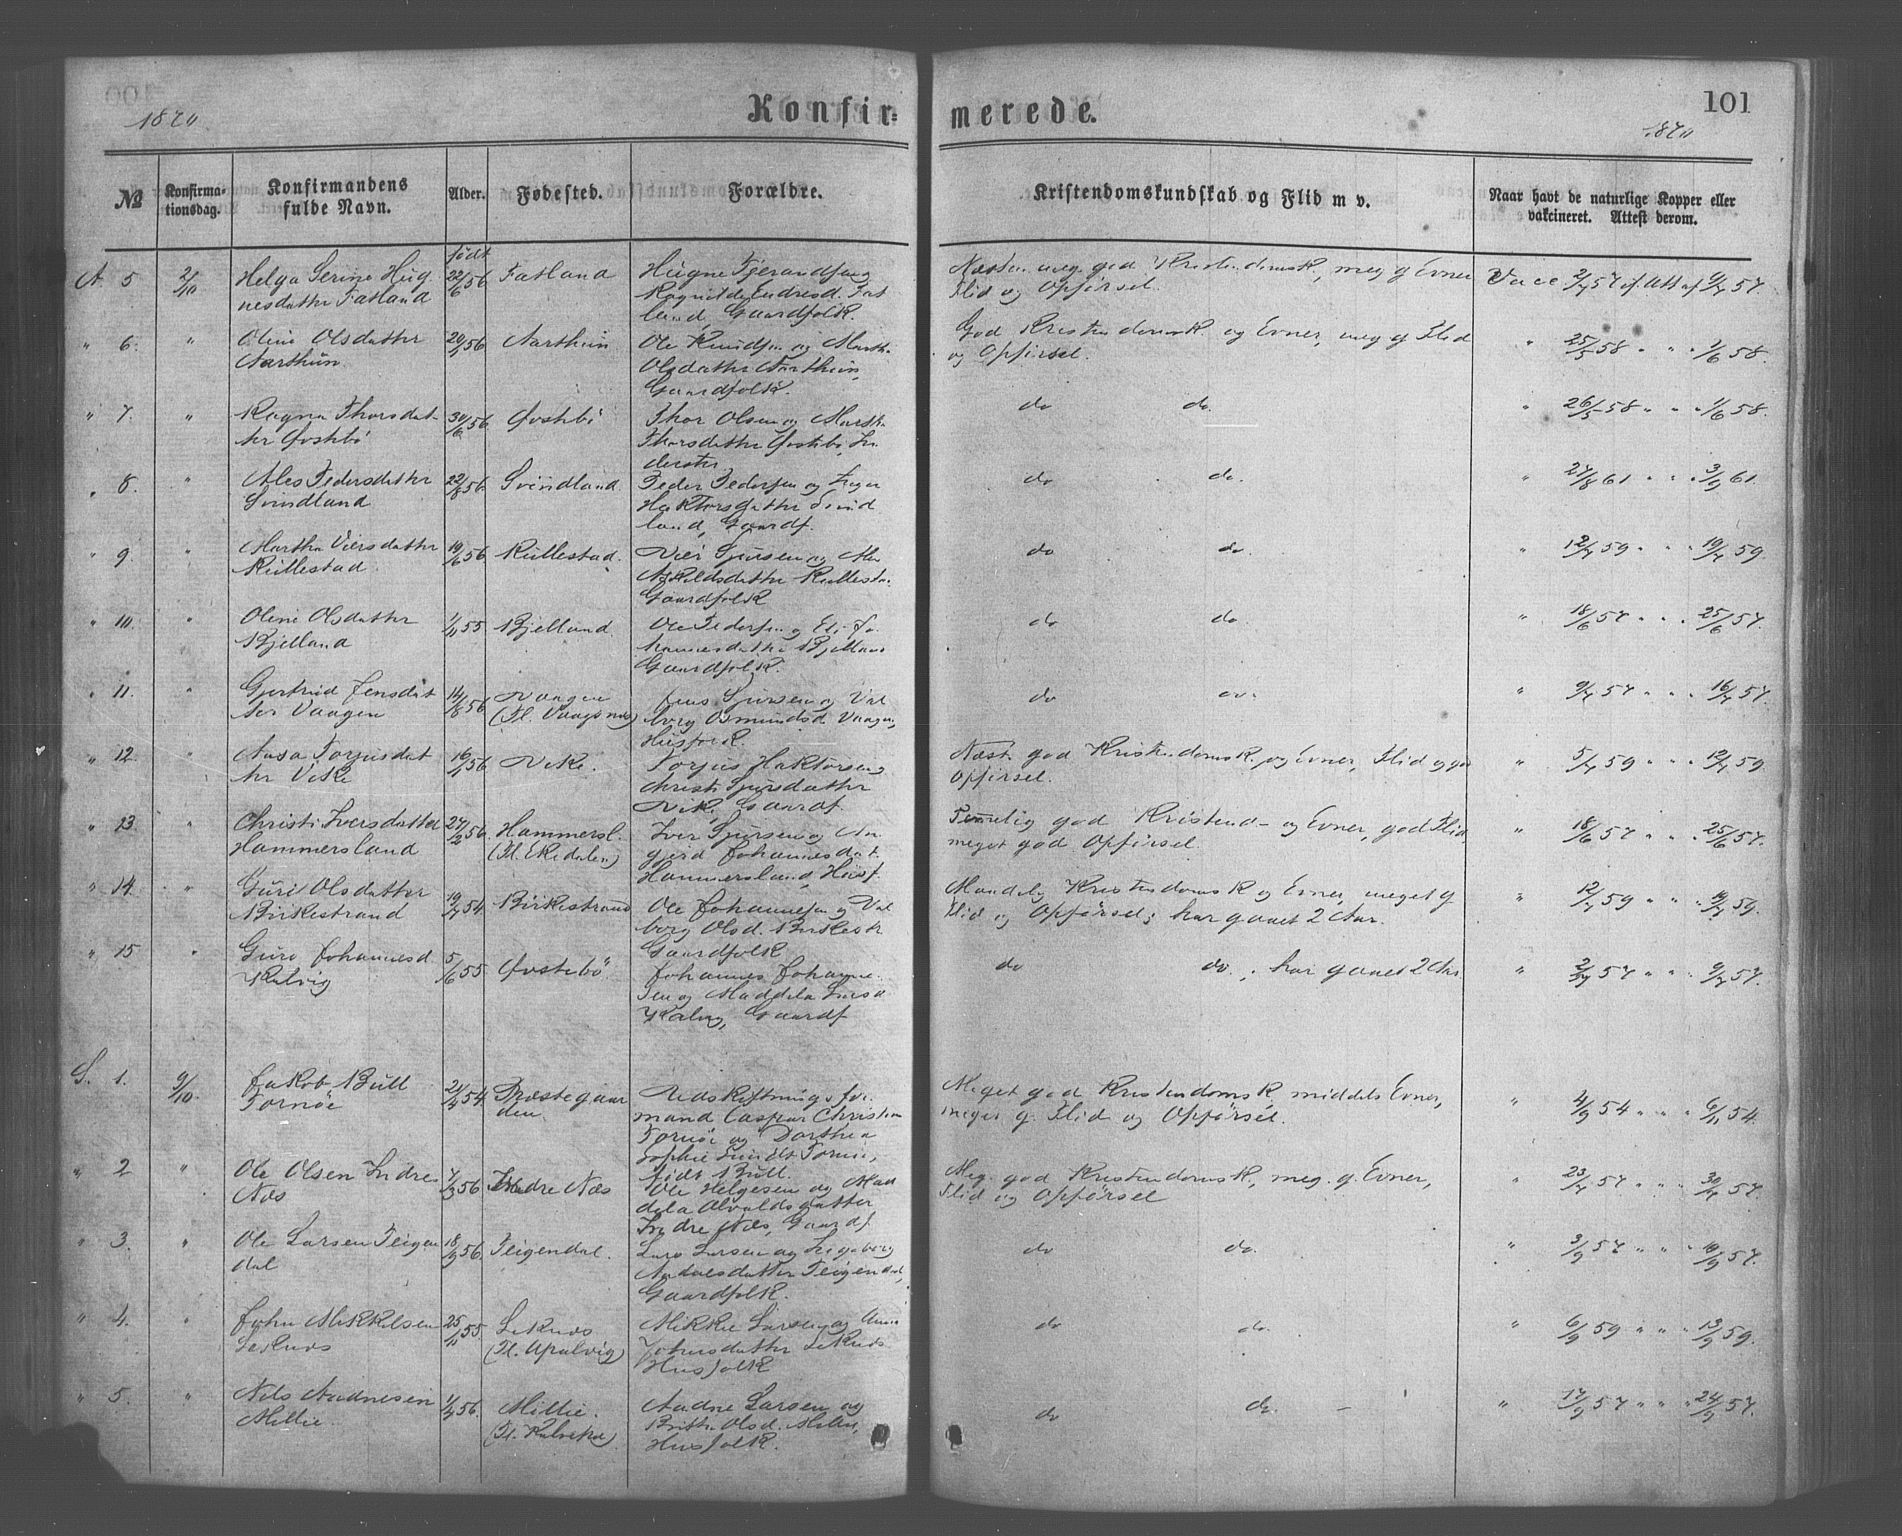 1870
Konfir=
merede.
101
1870
№
Konfirma-
tionsdag.
Konfirmandens
fulde Navn.
Alder.
Fødested.
Forældre.
Kristendomskundskab og Flid m v.
Naar havt de naturlige Kopper eller
vakcineret. Attest derom.
født
A 5 2/10 Helga Serine Hug
nesdatter Fatland
22/6 56 Fatland
Ragnilde Endresd. Fat
land, Gaardfolk.
Næsten meg. god Kristendomsk, meg g Evner
Flid og Opførsel.
Vacc 2/4 57 af Att af 9/4 57.
" 6. " Oline Olsdatter
Aarthun
20/1 56 Aarthun
Ole Knudsen og Marth.
Olsdatter Aarthun,
Gaardfolk.
God Kristendomsk og Evner, meg g Flid
og Opførsel.
" 25/5 58 " " 1/6 58.
" 7. " Ragna Thorsdat-
ter Østebø
30/6 56 Østebø
Thor Olsen og Marth.
Thorsdatter Østebø, In
derster
do do.
" 26/5 58 " " 1/6 58.
" 8. " Ales Pedersdatter
Svindland
22/8 56 Svindland
Peder Pedersen og Inger
Haktorsdatter Svind
land, Gaardf.
do do.
" 27/8 61 " " 3/9 61.
" 9. " Martha Viersdatter
Rullestad
19/6 56 Rullestad.
Vier Sjursen og
Askildsdatter Rullesta.
Gaardfolk
do do.
" 12/4 59 " " 19/4 59.
" 10. " Oline Olsdatter
Bjelland
1/11 55 Bjelland
Ole Pedersen og Eli Jo
hannesdatter Bjelland
Gaardfolk.
do do.
" 18/6 57 " " 25/6 57.
" 11. " Gjertrud Jensdat
ter Vaagen
14/8 56 Vaagen
(Pl. Vaagsnes)
Jens Sjursen og Val
borg Osmundsd. Vaagen,
Husfolk.
do do.
" 9/4 57 " " 16/4 57.
" 12. " Aasa Torjusdat
ter Vike
16/1 56 Vike.
Torjus Haktorsen og
Christi Sjursdatter
Vik, Gaardf.
Næst. god Kristendomsk. og Evner, Flid og god
Opførsel.
" 5/4 59 " " 12/4 59.
" 13. " Christi Iversdatter
Hammersland
27/2 56 Hammersl.
(Pl. Ekedalen)
Iver Sjursen og An
gjerd Johannesdat.
Hammersland, Husf.
Temmelig god Kristend- og Evner, god Flid,
meget god Opførsel.
" 18/6 57 " " 25/6 57.
" 14. " Guri Olsdatter
Birkestrand
19/4 54 Birkestrand
Ole Johannesen og Val
borg Olsd. Birkestr
Gaardfolk
Maadelig Kristendomsk og Evner, meget g
Flid og Opførsel; har gaaet 2 Aar.
" 12/4 59 " " 19/4 59.
" 15 " Guro Johannesd.
Kalvig
5/6 55 Østebø
Johannes Johanne
sen og Maddela Larsd
Kalvig, Gaardf
do do. ; har gaaet 2 Aar
" 2/4 57 " " 9/4 57.
S. 1. 9/10 Jakob Bull
Tornøe
21/4 54 Præstegaar
den.
Udskiftningsfor
mand Caspar Christian
Tornøe og Dorthea
Sophie Lundt Tornøe,
født Bull.
Meget god Kristendomsk, middels Evner,
meget g. Flid og Opførsel.
" 4/9 54 " " 6/11 54.
" 2 " Ole Olsen Indre
Næs
7/3 56 Indre Næs
Ole Helgesen og Mad
dela Alvaldsdatter
Indre Næs, Gaardf
Meg. god Kristendomsk, meg. g. Evner,
Flid og Opførsel
" 23/4 57 " " 30/4 57.
" 3. " Ole Larsen Teigen
dal
18/9 56. Teigendal.
Lars Larsen og Ingeborg
Aadnesdatter Teigendal,
Gaardfolk.
do do.
" 3/9 57 " " 10/9 57.
" 4. " John Mikkelsen
Leknes
25/11 55 Leknes
(Pl. Apalvig)
Mikkel Larsen og Anna
Johnsdatter Leknes
Husfolk
do do.
" 6/9 59 " " 13/9 59.
" 5. " Nils Aadnesen
Millie.
1/4 56. Millie.
Aadne Larsen og
Brithe Olsd. Millie,
Husfolk.
do do.
" 17/9 57 " " 24/9 57.